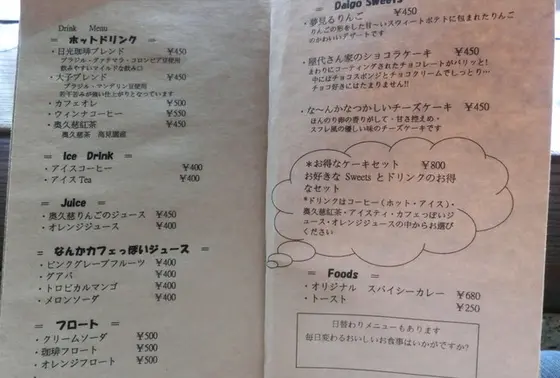 Drink Menu
= ホットドリンク =
・日光珈琲ブレンド ¥450
ブラジル・グァテマラ・コロンビア豆使用
飲みやすいマイルドな飲み口
・大子ブレンド ¥450
ブラジル・マンデリン豆使用
若干苦みが強い仕上がりとなっています
・カフェオレ ¥500
・ウィンナコーヒー ¥550
・奥久慈紅茶 ¥450
奥久慈茶 高見園産
= Ice Drink =
・アイスコーヒー ¥400
・アイスTea ¥400
= Juice =
・奥久慈りんごのジュース ¥450
・オレンジジュース ¥400
= なんかカフェっぽいジュース =
・ピンクグレープフルーツ ¥400
・グアバ ¥400
・トロピカルマンゴ ¥400
・メロンソーダ ¥400
= フロート =
・クリームソーダ ¥500
・珈琲フロート ¥500
・オレンジフロート ¥500
Daigo Sweets
・夢見るりんご ¥450
りんごの形をした甘〜いスウィートポテトに包まれたりんご
のかわいいデザートです
・屋代さん家のショコラケーキ ¥450
まわりにコーティングされたチョコレートがパリッと!
中にはチョコスポンジとチョコクリームでしっとり…
チョコ好きにはたまりません!!
・な〜んかなつかしいチーズケーキ ¥450
ほんのり卵の香りがして・甘さ控えめ・
スフレ風の優しい味のチーズケーキです
*お得なケーキセット ¥800
お好きな Sweets とドリンクのお得
なセット
*ドリンクはコーヒー(ホット・アイス)・
奥久慈紅茶・アイスティ・カフェっぽいジ
ュース・オレンジジュースの中からお選び
ください
= Foods =
・オリジナル スパイシーカレー ¥680
・トースト ¥250
日替わりメニューもあります
毎日変わるおいしいお食事はいかがですか?